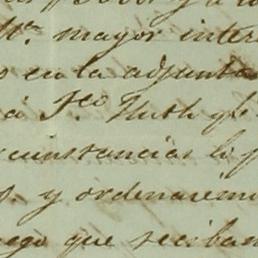 mayor inter
en la adjunta
á Fco Huth qe
cunstancias li
y ordenarem
que reciban